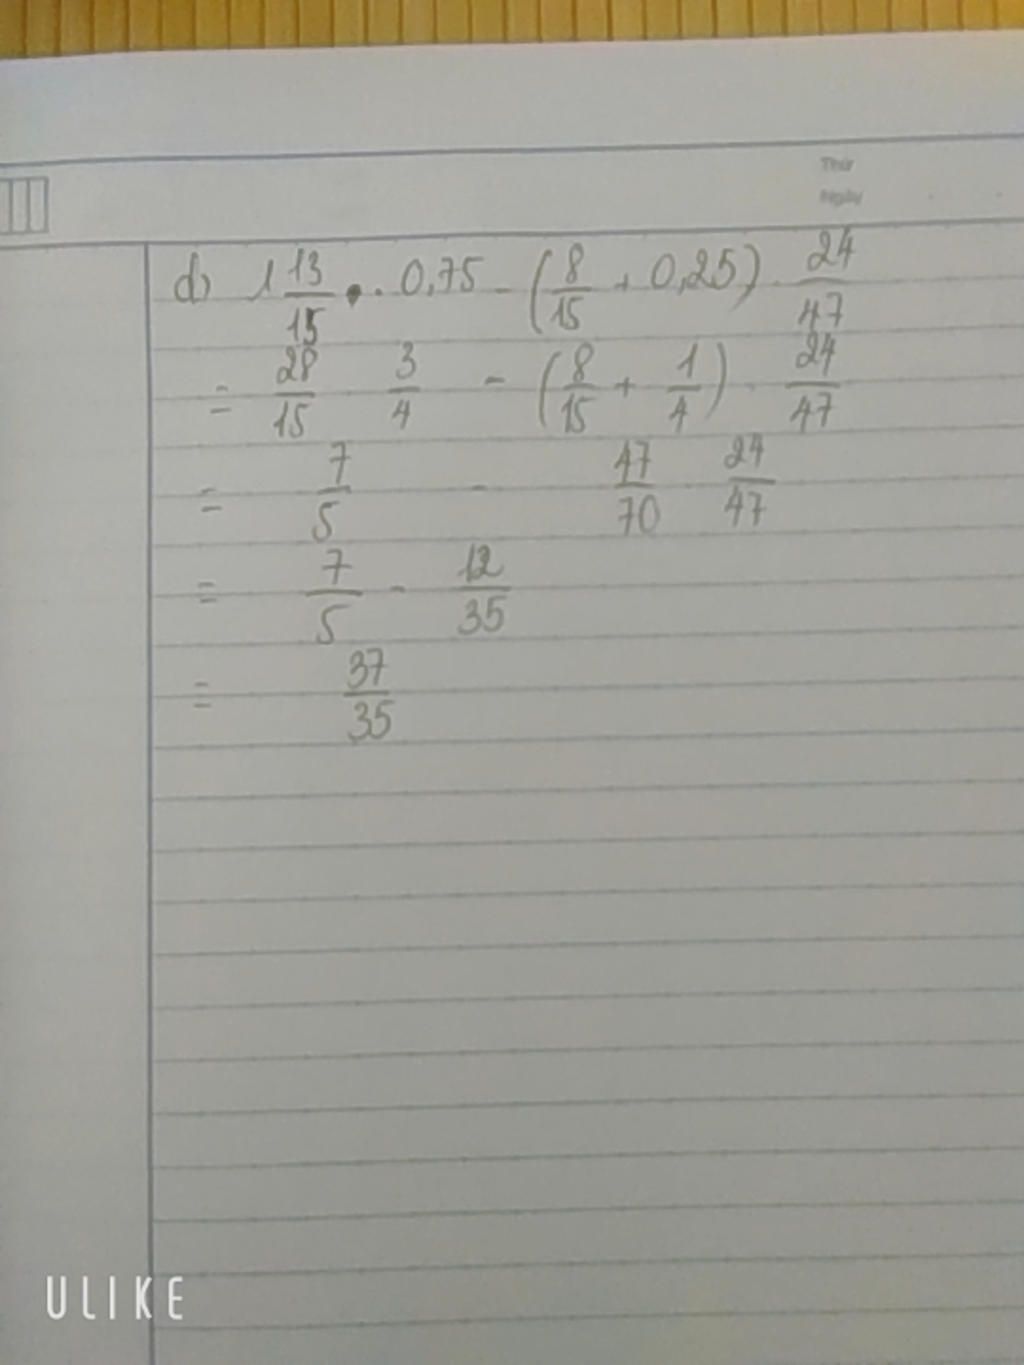 Thứ
Ngày
d) 1 13/15 . 0,75 - (8/15 + 0,25) . 24/47
= 28/15 3/4 - (8/15 + 1/4) . 24/47
= 7/5 - 47/70 24/47
= 7/5 - 12/35
= 37/35
ULIKE